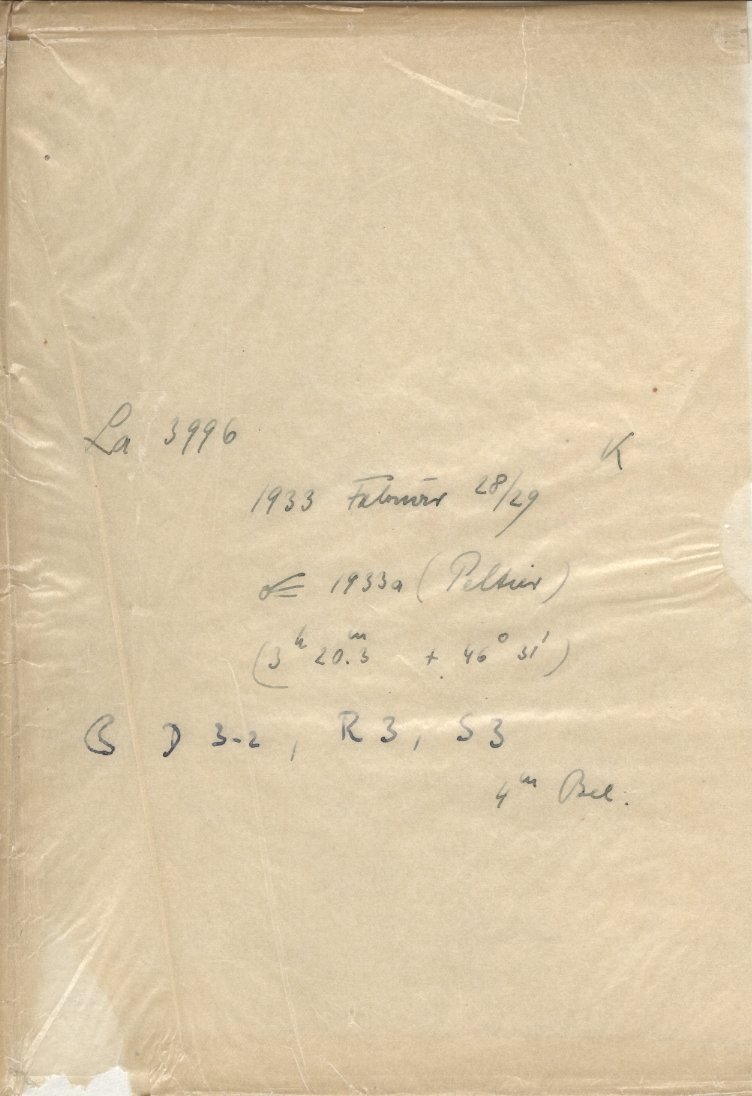 La 3996 K
1933 Februar 28/29
☄ 1933a (Peltier)
(3ʰ 20.ᵐ3 + 46° 31')
B D 3-2, R 3, S 3
4ᵐ Bel.